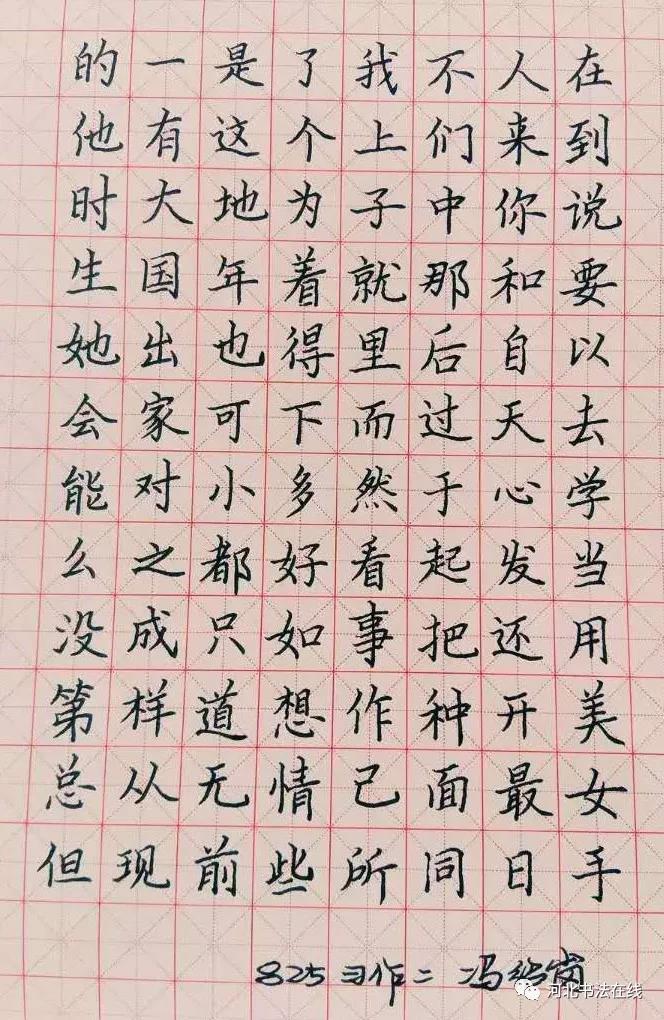 的一是了我不人在
他有这个上们来到
时大地为子中你说
生国年着就那和要
她出也得里后自以
会家可下而过天去
能对小多然于心学
么之都好看起发当
没成只如事把还用
第样道想作种开美
总从无情己面最女
但现前些所同日手
825习作二 冯
河北书法在线